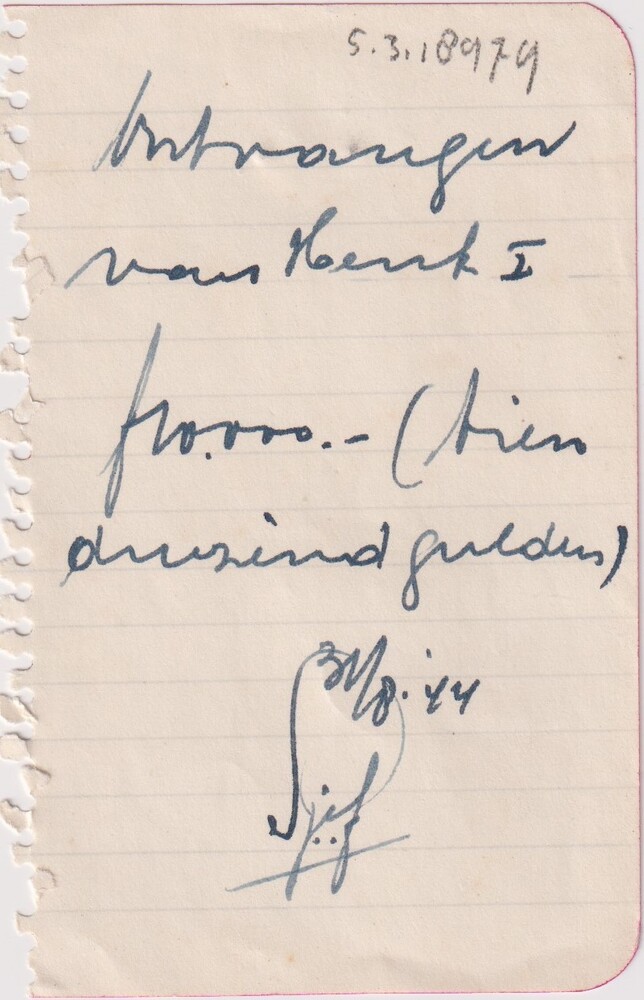 5.3.18979
Ontvangen
van Henk I
f10.000.- (tien
duizend gulden)
31/8.'44